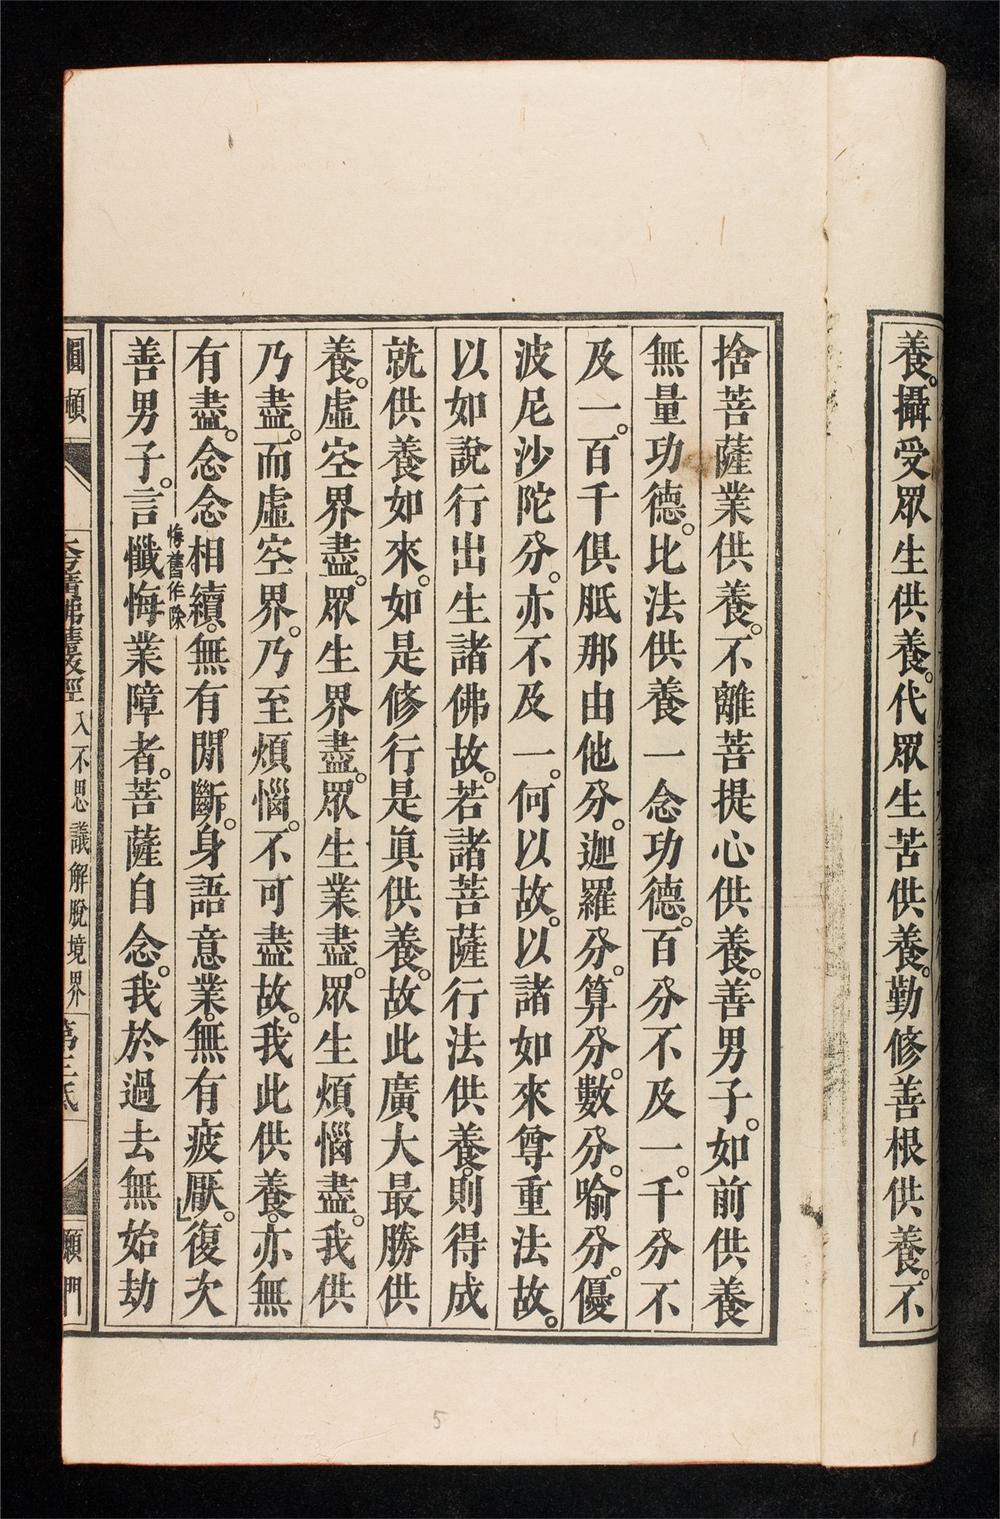 養。攝受眾生供養。代眾生苦供養。勤修善根供養。不
捨菩薩業供養。不離菩提心供養。善男子。如前供養
無量功德。比法供養一念功德。百分不及一。千分不
及一。百千俱胝那由他分。迦羅分。算分。數分。喻分。優
波尼沙陀分。亦不及一。何以故。以諸如來尊重法故。
以如說行出生諸佛故。若諸菩薩行法供養。則得成
就供養如來。如是修行是眞供養。故此廣大最勝供
養。虛空界盡。眾生界盡。眾生業盡。眾生煩惱盡。我供
乃盡。而虛空界。乃至煩惱。不可盡故。我此供養。亦無
有盡。念念相續。無有閒斷。身語意業。無有疲厭。」復次
悔舊作除
善男子。言懺悔業障者。菩薩自念。我於過去無始劫
圓頓
大方廣佛華嚴經 入不思議解脫境界
願門